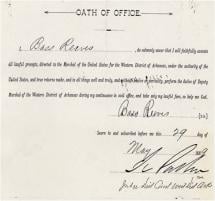 OATH OF OFFICE.
I Bass Reeves, do solemnly swear that I will faithfully execute
all lawful precepts, directed to the Marshal of the United States for the Western District of Arkansas, under the authority of the
United States, and true returns make, and in all things well and truly, and without malice or partiality, perform the duties of Deputy
Marshal of the Western District of Arkansas during my continuance in said office, and take only my lawful fees, so help me God.
Bass Reeves
Sworn to and subscribed before me this 29 day of
May